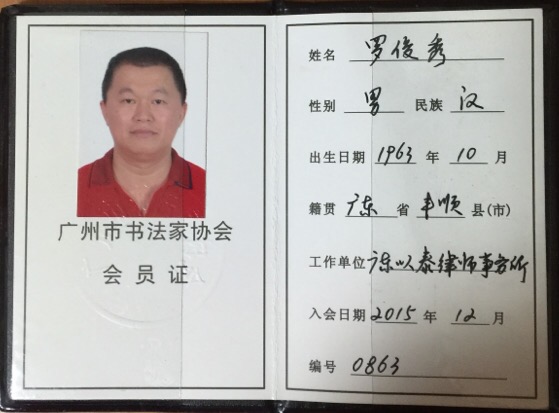 广州市书法家协会
会员证
姓名 罗俊秀
性别 男 民族 汉
出生日期 1963 年 10 月
籍贯 广东 省 丰顺 县(市)
工作单位 广东以泰律师事务所
入会日期 2015 年 12 月
编号 0863